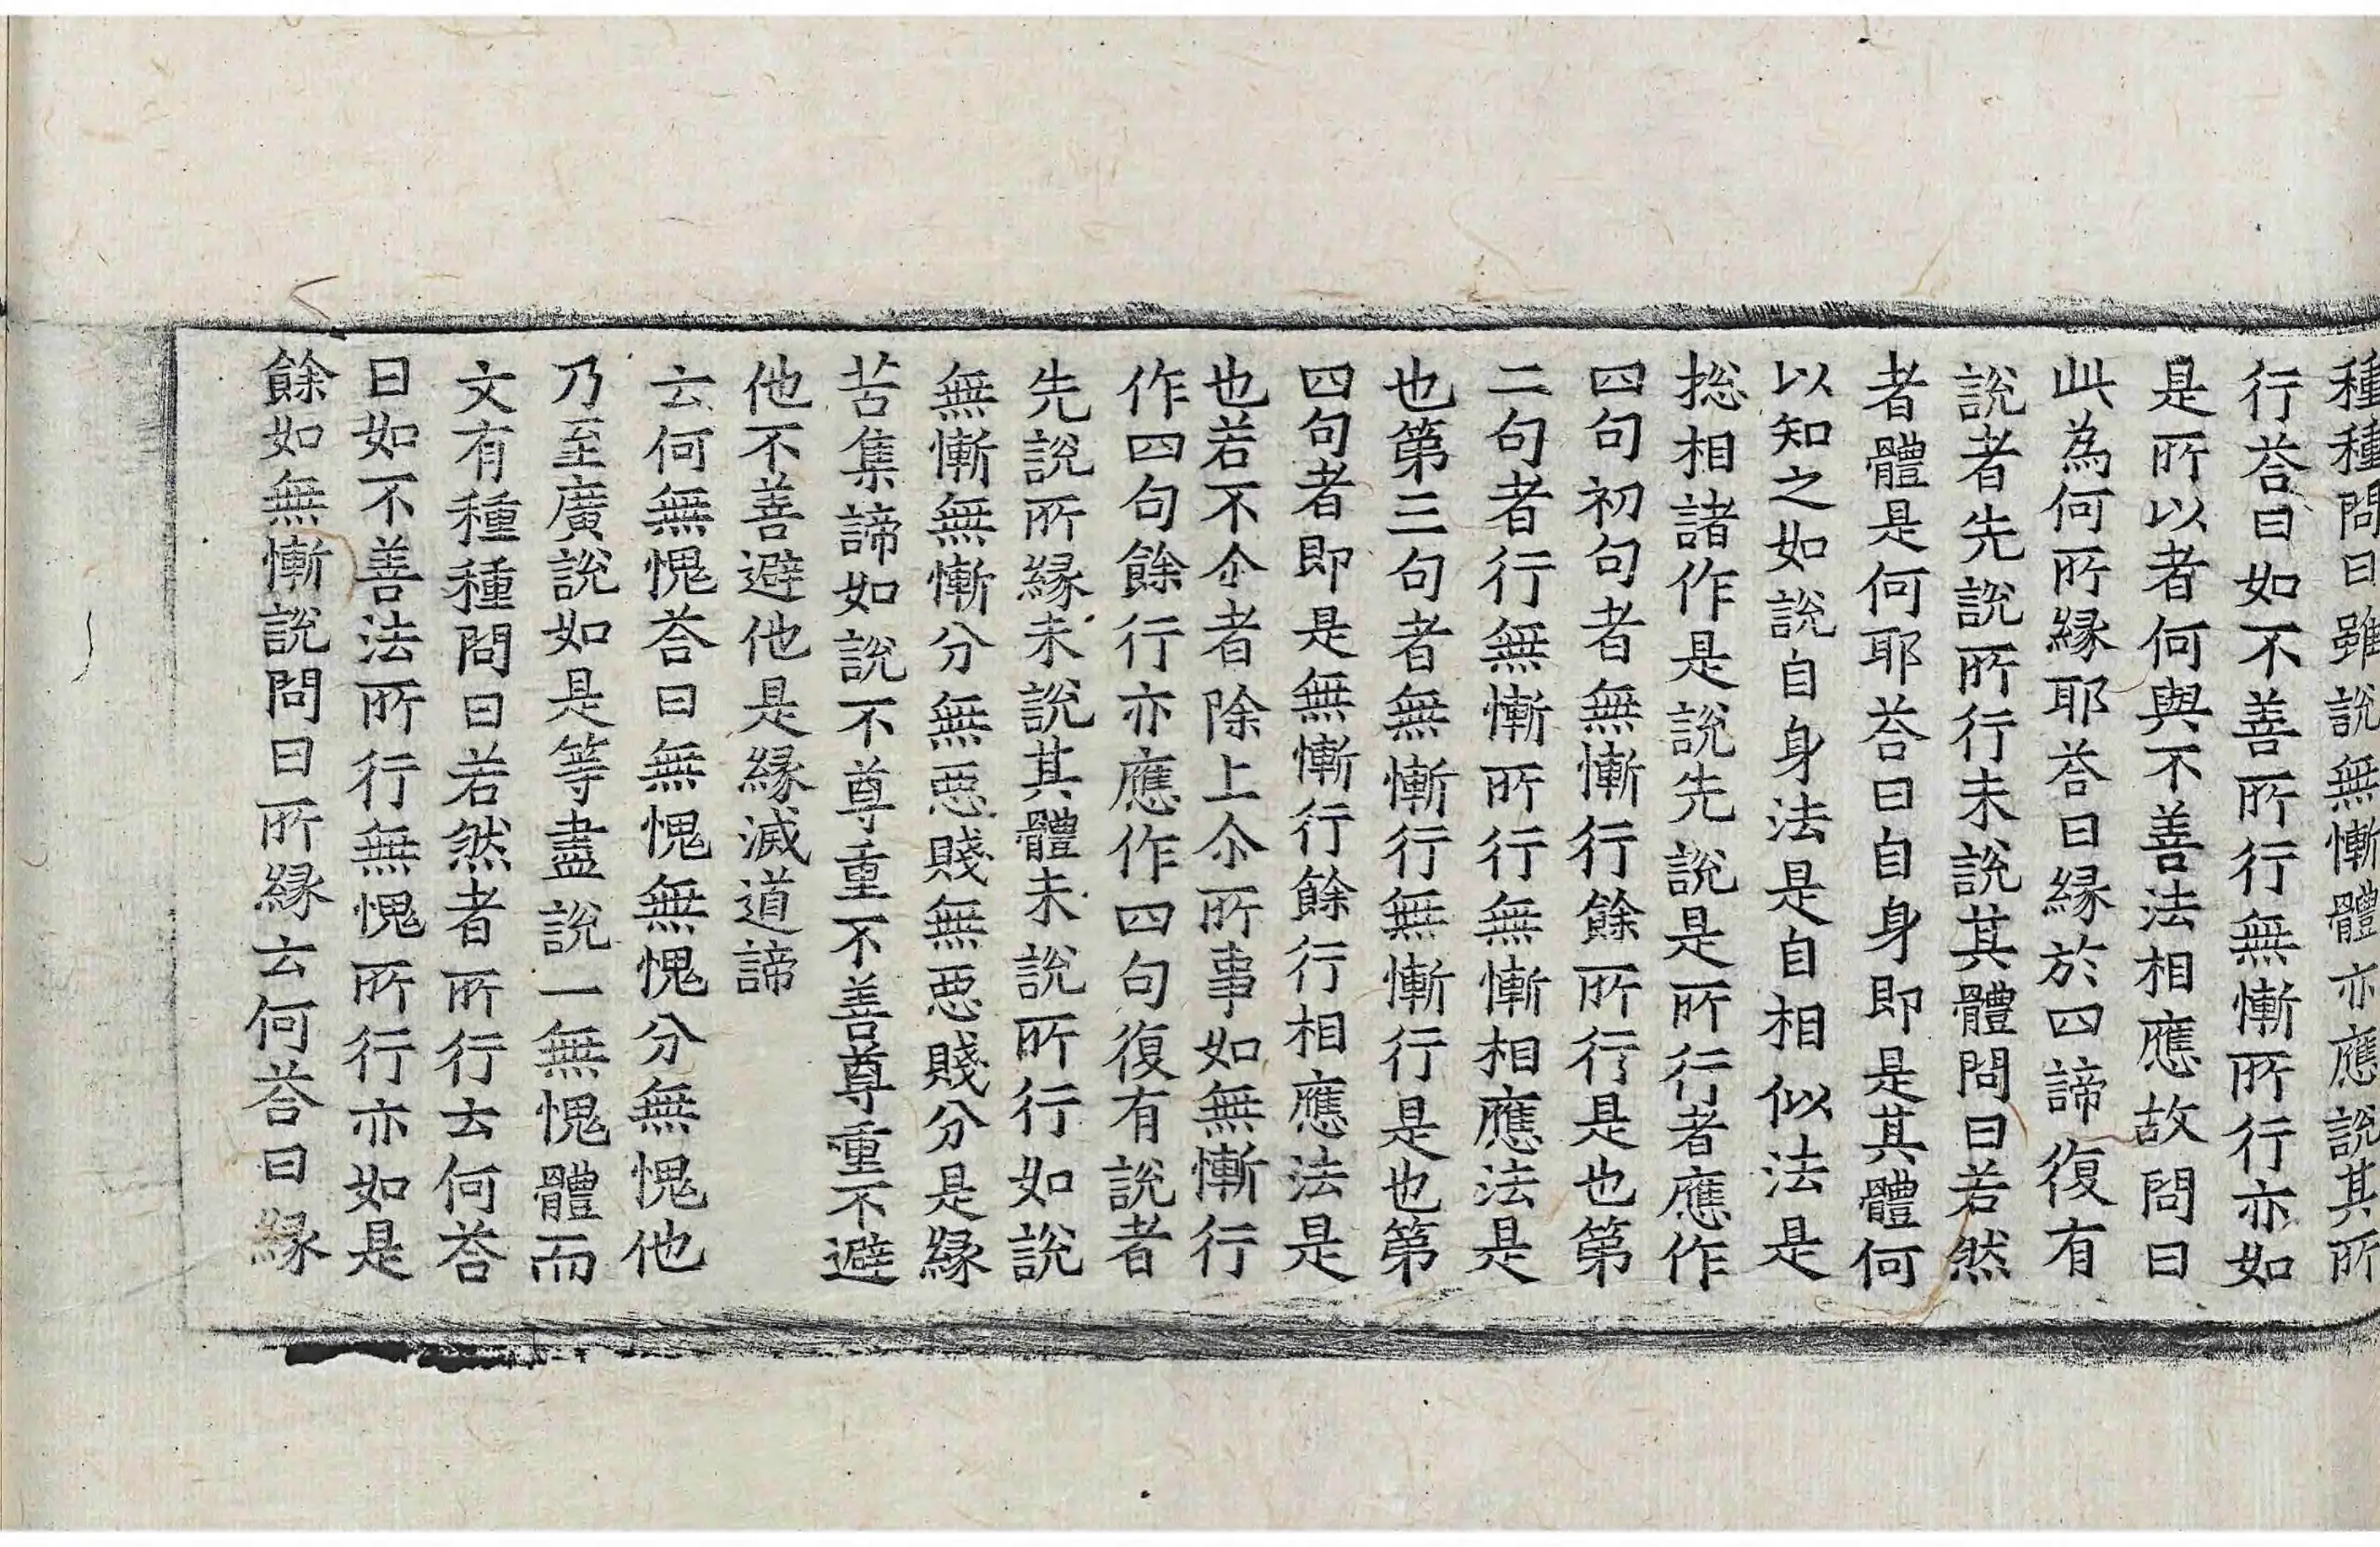 種種問曰雖說無慚體亦應說其所
行荅曰如不善所行無慚所行亦如
是所以者何與不善法相應故問曰
此為何所緣耶荅曰緣於四諦復有
說者先說所行未說其體問曰若然
者體是何耶荅曰自身即是其體何
以知之如說自身法是自相似法是
揔相諸作是說先說是所行者應作
四句初句者無慚行餘所行是也第
二句者行無慚所行無慚相應法是
也第三句者無慚行無慚行是也第
四句者即是無慚行餘行相應法是
也若不尒者除上尒所事如無慚行
作四句餘行亦應作四句復有說者
先說所緣未說其體未說所行如說
無慚無慚分無惡賤無惡賤分是緣
苦集諦如說不尊重不善尊重不避
他不善避他是緣滅道諦
云何無愧荅曰無愧無愧分無愧他
乃至廣說如是等盡說一無愧體而
文有種種問曰若然者所行云何荅
曰如不善法所行無愧所行亦如是
餘如無慚說問曰所緣云何荅曰緣